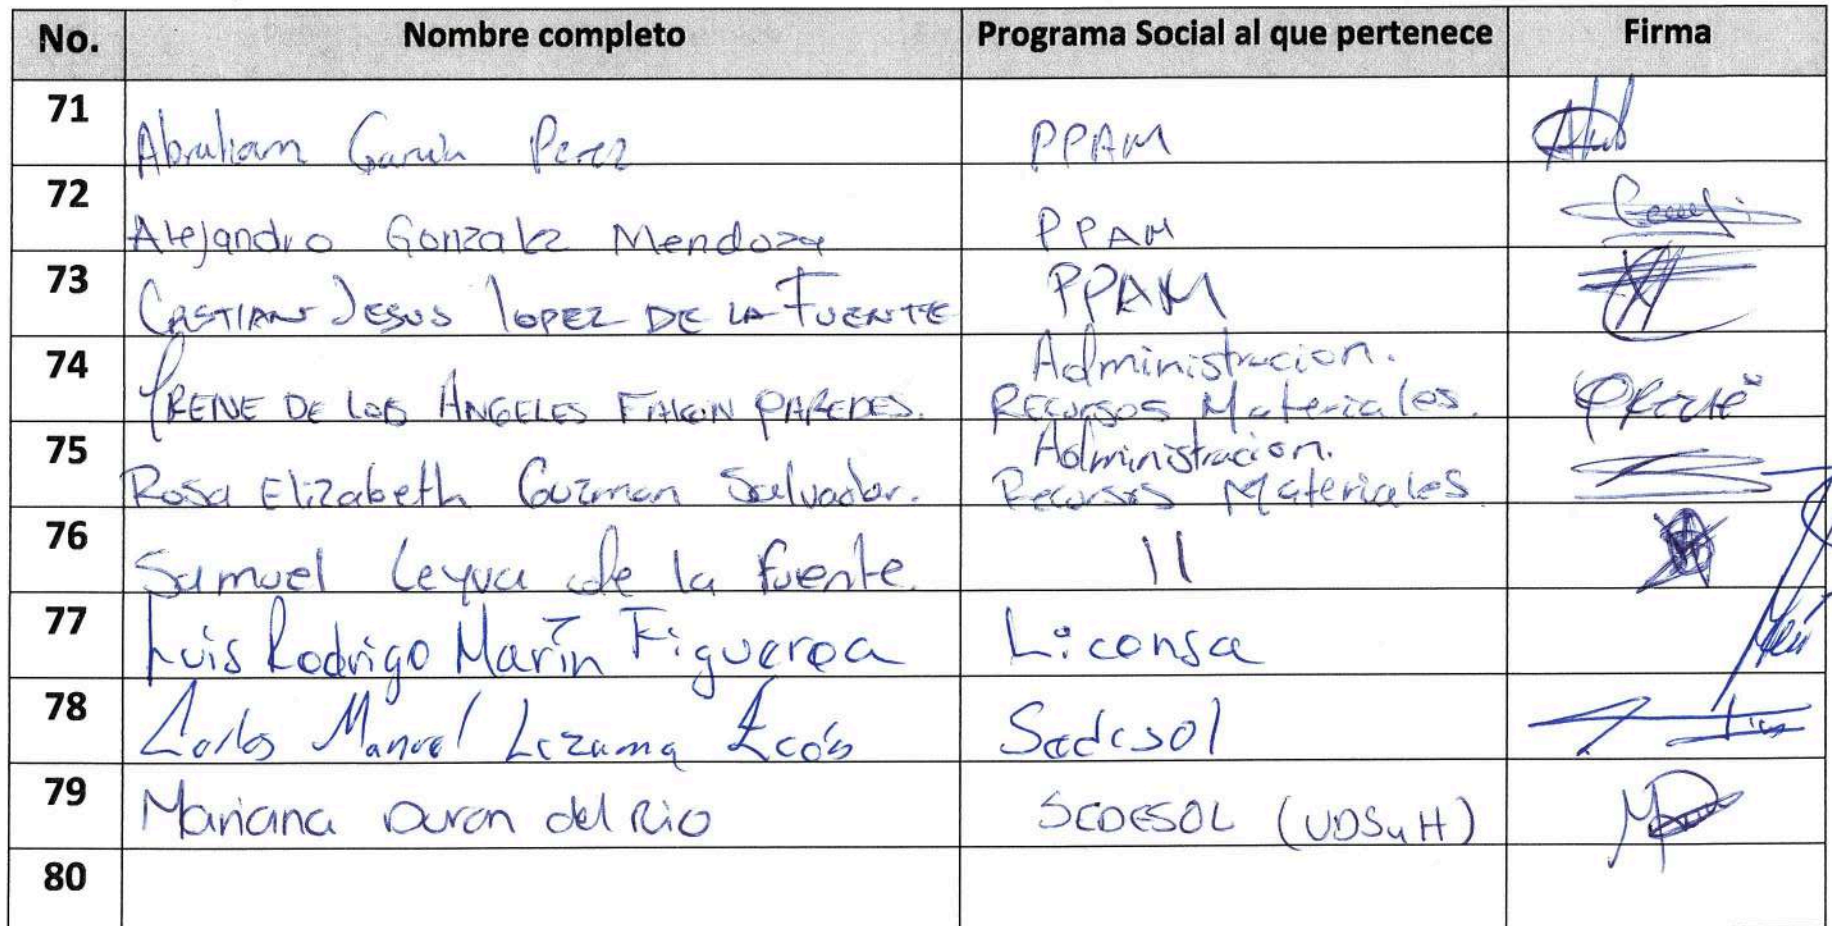 No. Nombre completo Programa Social al que pertenece Firma
71 Abraham Garcia Perez PPAM
72 Alejandro Gonzalez Mendoza PPAM
73 CRISTIAN JESUS LOPEZ DE LA FUENTE PPAM
74 IRENE DE LOS ANGELES FALCON PAREDES. Administracion.
Recursos Materiales.
75 Rosa Elizabeth Guzman Salvador. Administracion.
Recursos Materiales
76 Samuel Leyva de la fuente. 11
77 Luis Rodrigo Marín Figueroa Liconsa
78 Carlos Manuel Lezama Sedesol
79 Mariana Duran del Rio SEDESOL (UDSuH)
80